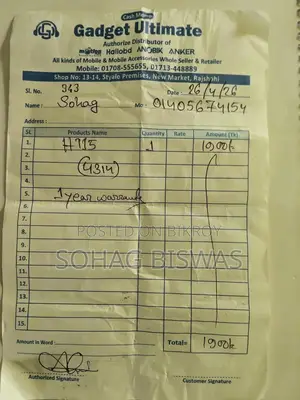 Cash Memo
Gadget Ultimate
Authorize Distributor of
Hallobd ANOBIK ANKER
All kinds of Mobile & Mobile Accessories Whole Seller & Retailer
Mobile: 01708-555655, 01713-448889
Shop No: 13-14, Styale Premises, New Market, Rajshahi
Sl. No. 343 Date: 26/4/26
Name: Sohag Mo: 01405674154
Address:
SL Products Name Quantity Rate Amount (Tk)
1. H115 1 1900/-
2.
3. (4314)
4.
5. 1 year warranty
6.
7.
POSTED ON BIKROY
8.
9.
SOHAG BISWAS
10.
11.
12.
13.
14.
15.
Amount in Word: Total= 1900/-
Authorized Signature Customer Signature